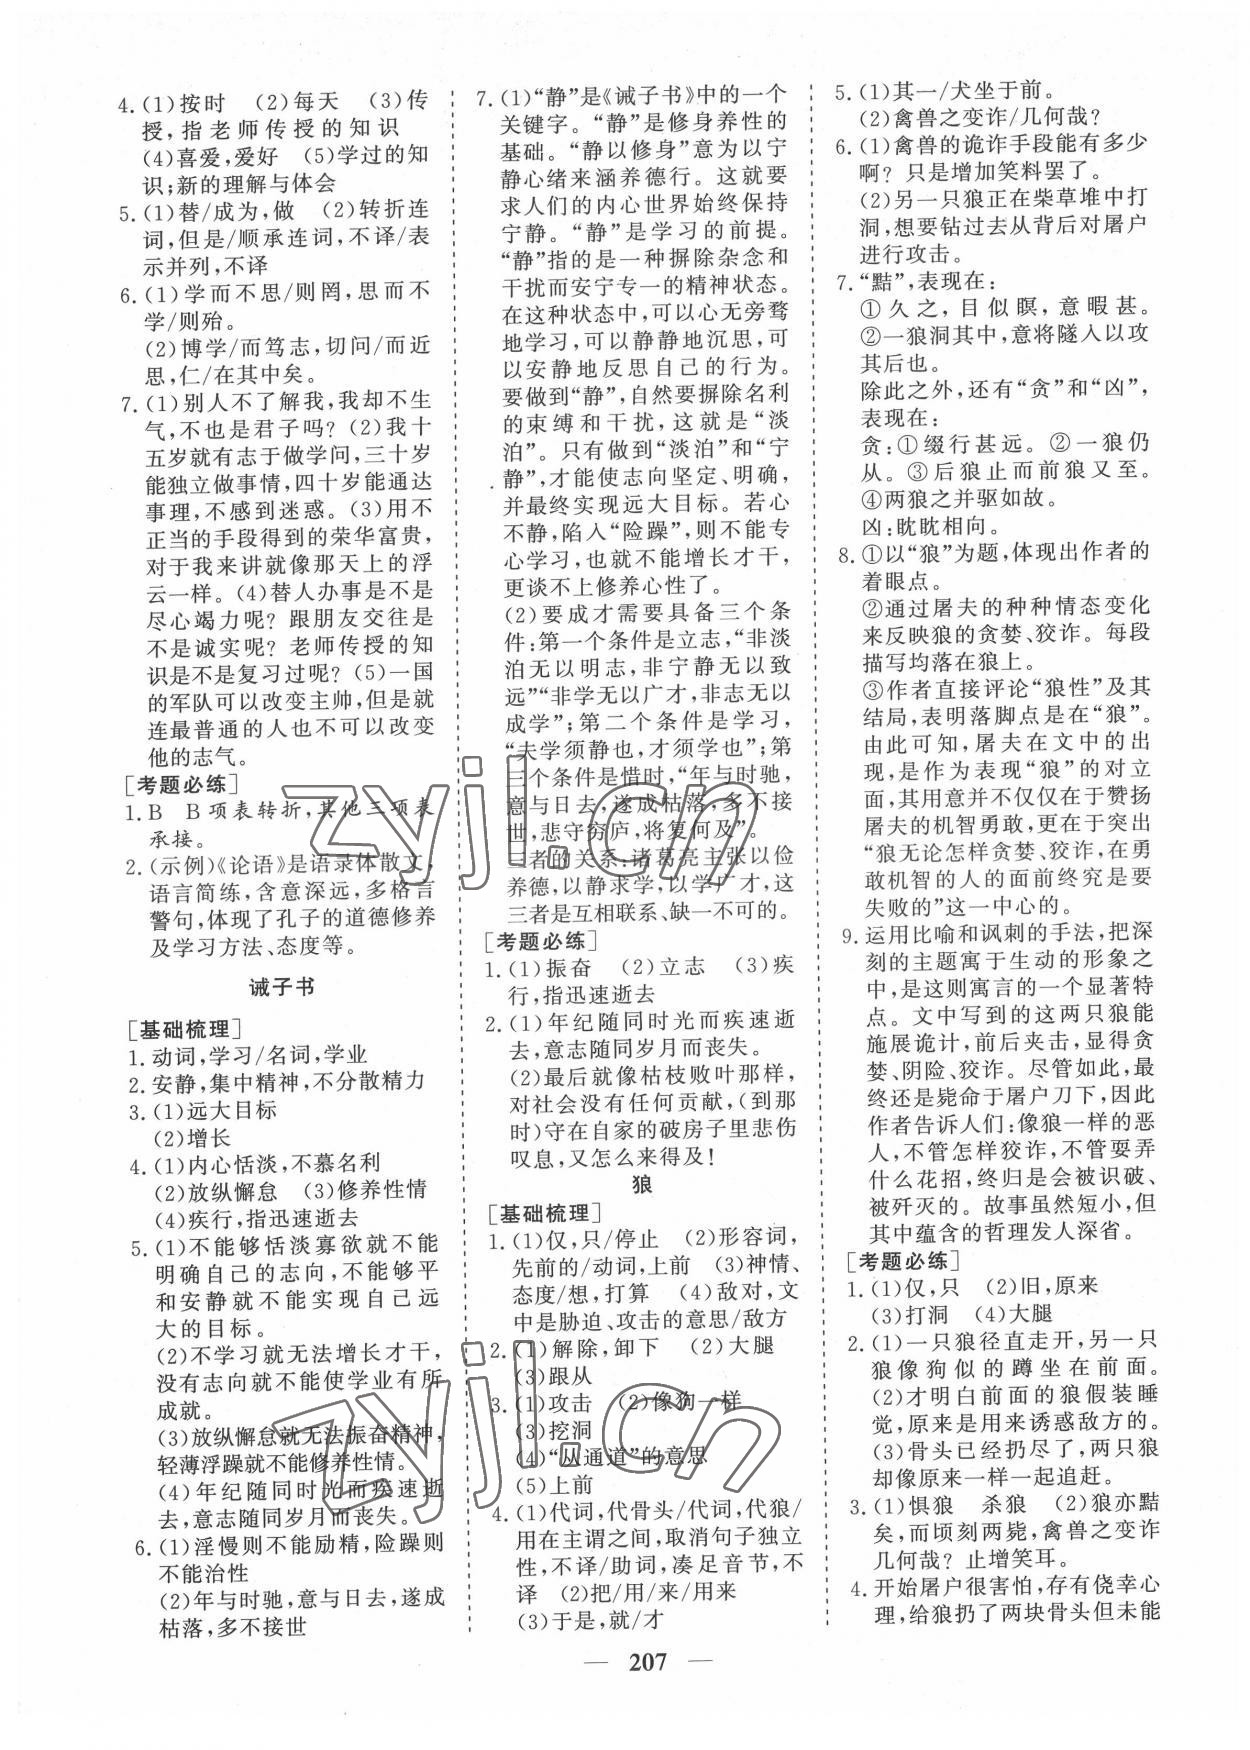 4.(1)按时　(2)每天　(3)传
授,指老师传授的知识
(4)喜爱,爱好　(5)学过的知
识;新的理解与体会
5.(1)替/成为,做　(2)转折连
词,但是/顺承连词,不译/表
示并列,不译
6.(1)学而不思/则罔,思而不
学/则殆。
(2)博学/而笃志,切问/而近
思,仁/在其中矣。
7.(1)别人不了解我,我却不生
气,不也是君子吗？(2)我十
五岁就有志于做学问,三十岁
能独立做事情,四十岁能通达
事理,不感到迷惑。(3)用不
正当的手段得到的荣华富贵,
对于我来讲就像那天上的浮
云一样。(4)替人办事是不是
尽心竭力呢？跟朋友交往是
不是诚实呢？老师传授的知
识是不是复习过呢？(5)一国
的军队可以改变主帅,但是就
连最普通的人也不可以改变
他的志气。
[考题必练]
1.B　B项表转折,其他三项表
承接。
2.(示例)《论语》是语录体散文,
语言简练,含意深远,多格言
警句,体现了孔子的道德修养
及学习方法、态度等。
诫子书
[基础梳理]
1.动词,学习/名词,学业
2.安静,集中精神,不分散精力
3.(1)远大目标
(2)增长
4.(1)内心恬淡,不慕名利
(2)放纵懈怠　(3)修养性情
(4)疾行,指迅速逝去
5.(1)不能够恬淡寡欲就不能
明确自己的志向,不能够平
和安静就不能实现自己远
大的目标。
(2)不学习就无法增长才干,
没有志向就不能使学业有所
成就。
(3)放纵懈怠就无法振奋精神,
轻薄浮躁就不能修养性情。
(4)年纪随同时光而疾速逝
去,意志随同岁月而丧失。
6.(1)淫慢则不能励精,险躁则
不能治性
(2)年与时驰,意与日去,遂成
枯落,多不接世
7.(1)“静”是《诫子书》中的一个
关键字。“静”是修身养性的
基础。“静以修身”意为以宁
静心绪来涵养德行。这就要
求人们的内心世界始终保持
宁静。“静”是学习的前提。
“静”指的是一种摒除杂念和
干扰而安宁专一的精神状态。
在这种状态中,可以心无旁骛
地学习,可以静静地沉思,可
以安静地反思自己的行为。
要做到“静”,自然要摒除名利
的束缚和干扰,这就是“淡
泊”。只有做到“淡泊”和“宁
静”,才能使志向坚定、明确,
并最终实现远大目标。若心
不静,陷入“险躁”,则不能专
心学习,也就不能增长才干,
更谈不上修养心性了。
(2)要成才需要具备三个条
件:第一个条件是立志,“非淡
泊无以明志,非宁静无以致
远”“非学无以广才,非志无以
成学”;第二个条件是学习,
“夫学须静也,才须学也”;第
三个条件是惜时,“年与时驰,
意与日去,遂成枯落,多不接
世,悲守穷庐,将复何及”。
三者的关系:诸葛亮主张以俭
养德,以静求学,以学广才,这
三者是互相联系、缺一不可的。
[考题必练]
1.(1)振奋　(2)立志　(3)疾
行,指迅速逝去
2.(1)年纪随同时光而疾速逝
去,意志随同岁月而丧失。
(2)最后就像枯枝败叶那样,
对社会没有任何贡献,(到那
时)守在自家的破房子里悲伤
叹息,又怎么来得及!
狼
[基础梳理]
1.(1)仅,只/停止　(2)形容词,
先前的/动词,上前　(3)神情、
态度/想,打算　(4)敌对,文
中是胁迫、攻击的意思/敌方
2.(1)解除,卸下　(2)大腿
(3)跟从
3.(1)攻击　(2)像狗一样
(3)挖洞
(4)“从通道”的意思
(5)上前
4.(1)代词,代骨头/代词,代狼/
用在主谓之间,取消句子独立
性,不译/助词,凑足音节,不
译　(2)把/用/来/用来
(3)于是,就/才
5.(1)其一/犬坐于前。
(2)禽兽之变诈/几何哉?
6.(1)禽兽的诡诈手段能有多少
啊？只是增加笑料罢了。
(2)另一只狼正在柴草堆中打
洞,想要钻过去从背后对屠户
进行攻击。
7.“黠”,表现在:
①久之,目似瞑,意暇甚。
②一狼洞其中,意将隧入以攻
其后也。
除此之外,还有“贪”和“凶”,
表现在:
贪:①缀行甚远。②一狼仍
从。③后狼止而前狼又至。
④两狼之并驱如故。
凶:眈眈相向。
8.①以“狼”为题,体现出作者的
着眼点。
②通过屠夫的种种情态变化
来反映狼的贪婪、狡诈。每段
描写均落在狼上。
③作者直接评论“狼性”及其
结局,表明落脚点是在“狼”。
由此可知,屠夫在文中的出
现,是作为表现“狼”的对立
面,其用意并不仅仅在于赞扬
屠夫的机智勇敢,更在于突出
“狼无论怎样贪婪、狡诈,在勇
敢机智的人的面前终究是要
失败的”这一中心的。
9.运用比喻和讽刺的手法,把深
刻的主题寓于生动的形象之
中,是这则寓言的一个显著特
点。文中写到的这两只狼能
施展诡计,前后夹击,显得贪
婪、阴险、狡诈。尽管如此,最
终还是毙命于屠户刀下,因此
作者告诉人们:像狼一样的恶
人,不管怎样狡诈,不管耍弄
什么花招,终归是会被识破、
被歼灭的。故事虽然短小,但
其中蕴含的哲理发人深省。
[考题必练]
1.(1)仅,只　(2)旧,原来
(3)打洞　(4)大腿
2.(1)一只狼径直走开,另一只
狼像狗似的蹲坐在前面。
(2)才明白前面的狼假装睡
觉,原来是用来诱惑敌方的。
(3)骨头已经扔尽了,两只狼
却像原来一样一起追赶。
3.(1)惧狼　杀狼　(2)狼亦黠
矣,而顷刻两毙,禽兽之变诈
几何哉？止增笑耳。
4.开始屠户很害怕,存有侥幸心
理,给狼扔了两块骨头但未能
— 207 —
zyjl.cn
zyjl.cn